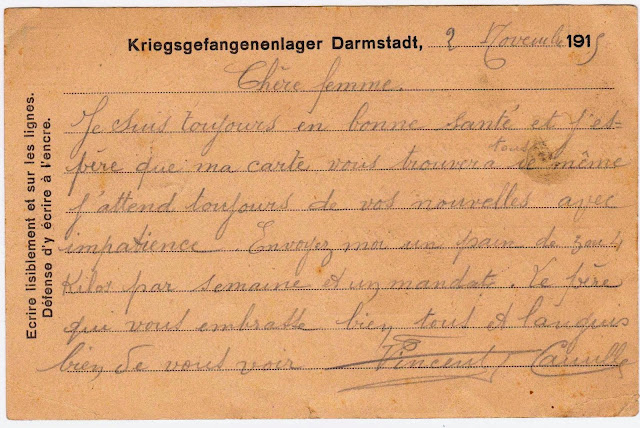 Kriegsgefangenenlager Darmstadt, 2 Novembre 1915
Chère femme.
Je suis toujours en bonne santé et j'es-
père que ma carte vous trouvera tous de même
j'attend toujours de vos nouvelles avec
impatience. Envoyez moi un pain de 3 ou 4
Kilos par semaine et un mandat. Le père
qui vous embrasse bien tous et languis
bien de vous voir Vincent Camille
Ecrire lisiblement et sur les lignes.
Défense d'y écrire à l'encre.